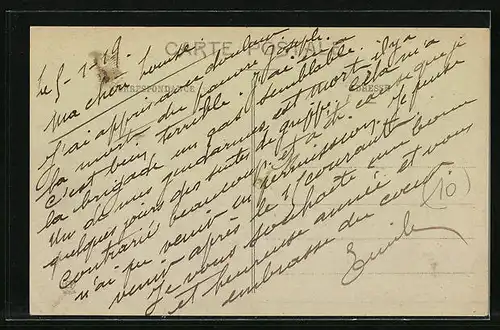 CARTE POSTALE
CORRESPONDANCE
ADRESSE
Le 5-1-19
Ma chère
J'ai appris avec douleur
la mort du pauvre Joseph.
C'est bien terrible. J'ai eu à
la brigade un cas semblable.
Un de mes gendarmes est mort il y a
quelques jours des suites de grippe. Cela m'a
contrarié beaucoup et a été cause que je
n'ai pu venir en permission. Je pense
venir après le 15 courant.
Je vous souhaite une bonne
et heureuse année et vous
embrasse du coeur
Emile
(10)